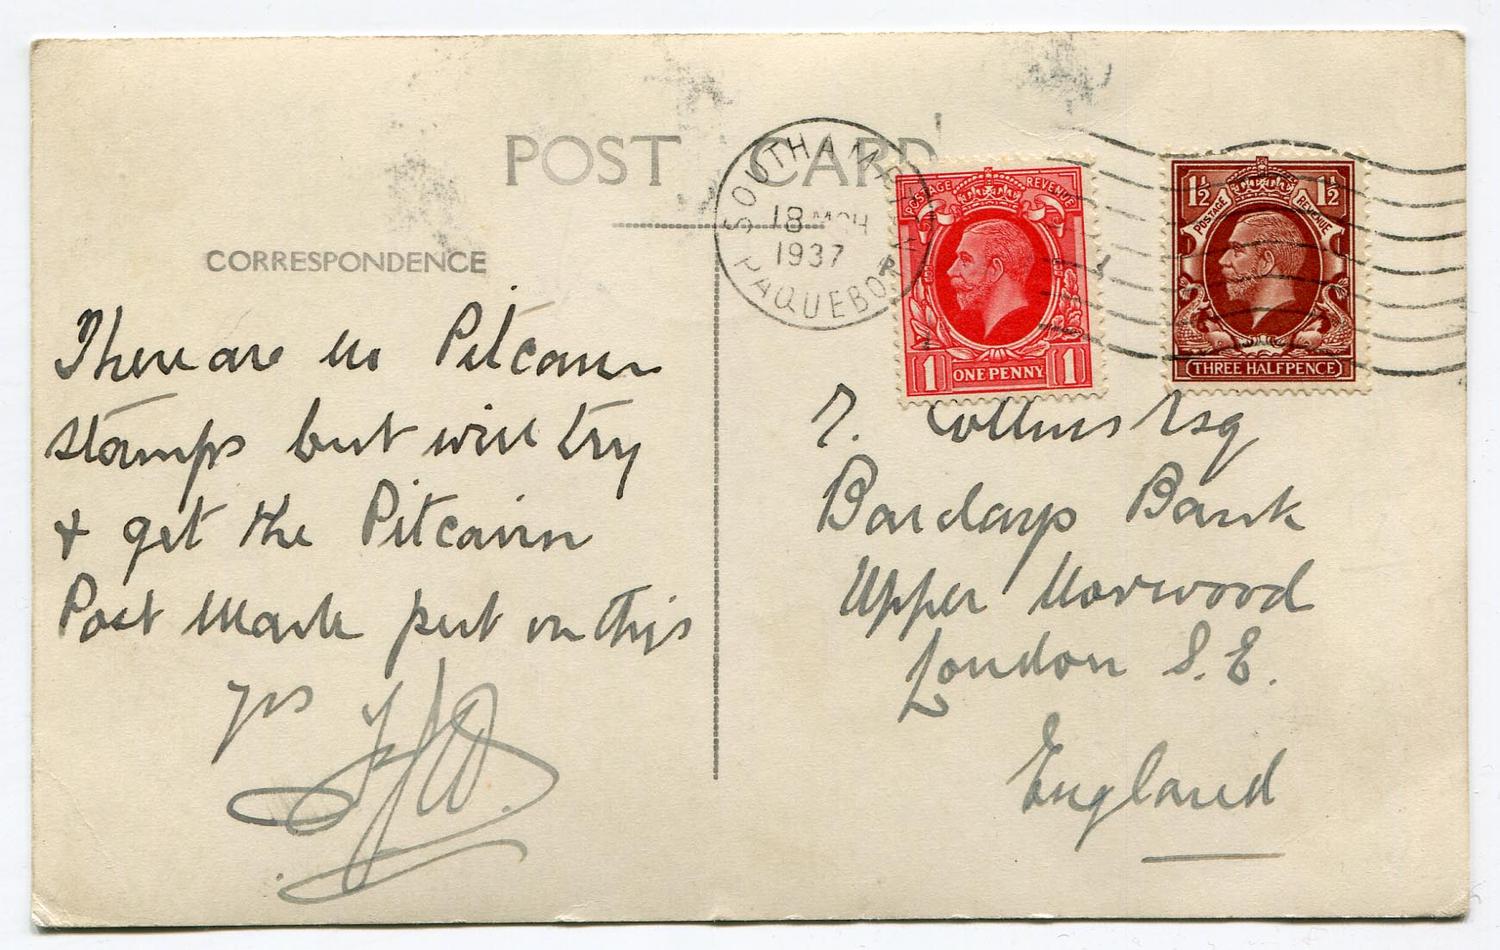 POST CARD
CORRESPONDENCE
SOUTHAMPTON
18 MCH
1937
PAQUEBOT
POSTAGE REVENUE
1 ONE PENNY 1
1½ 1½
POSTAGE REVENUE
THREE HALFPENCE
There are no Pitcairn
stamps but will try
& get the Pitcairn
Post Mark put on this
yrs
Collins Esq
Barclays Bank
Upper Norwood
London S.E.
England